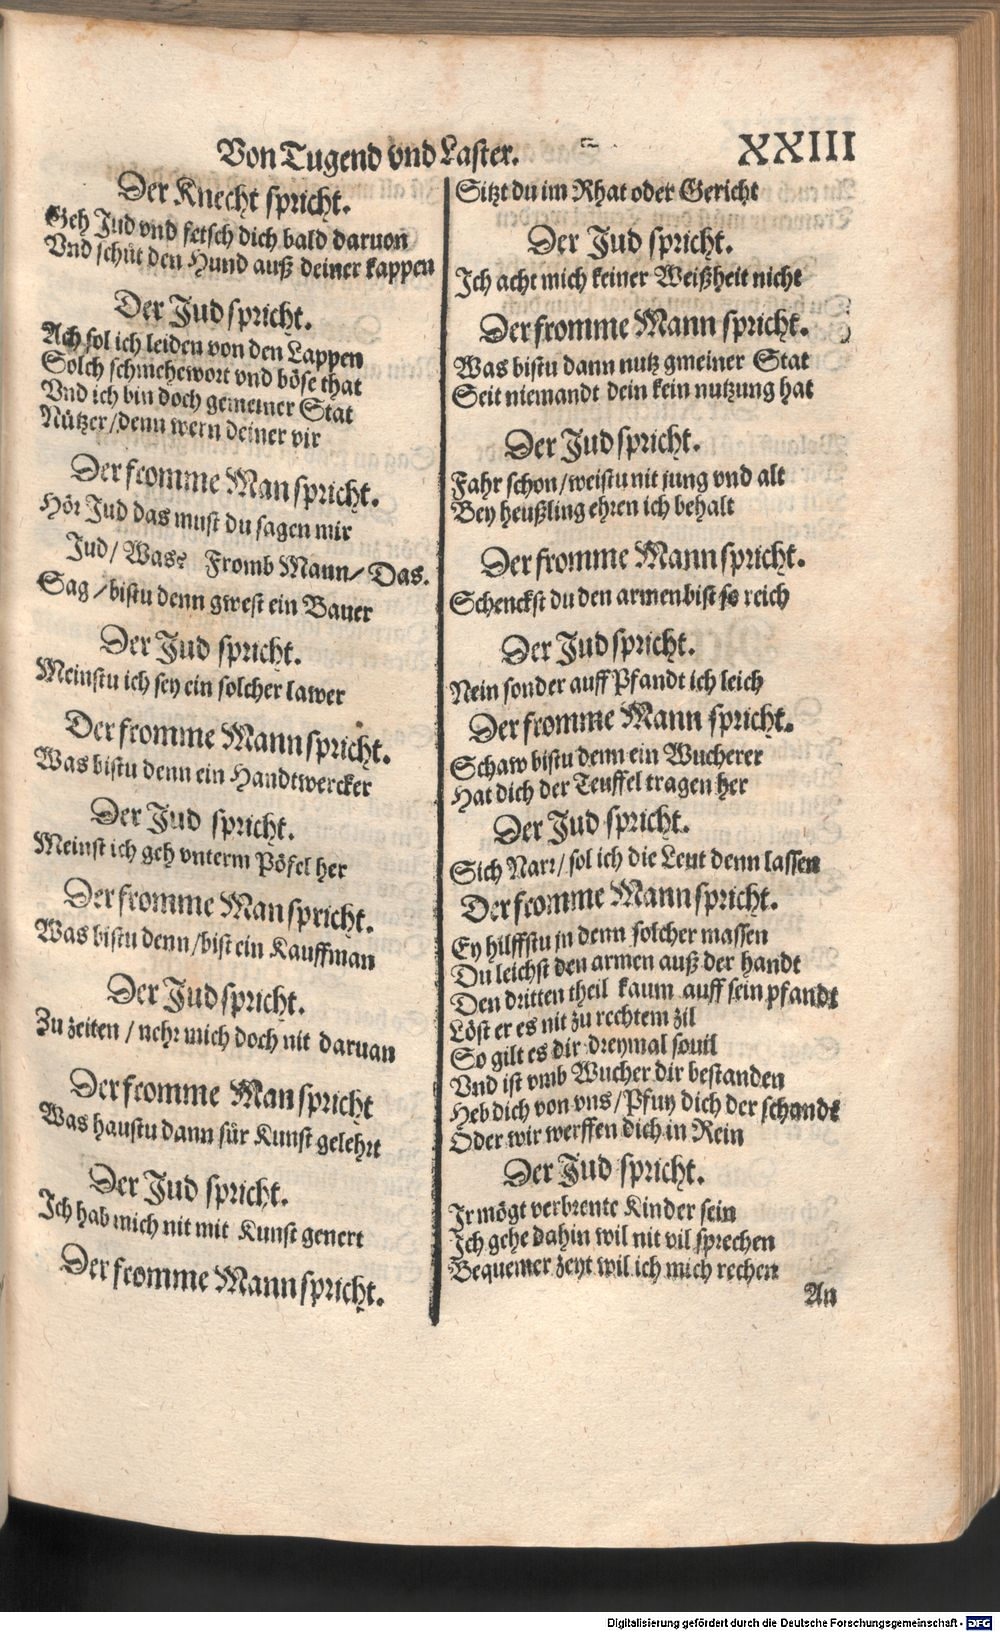 Von Tugend vnd Laster.
XXIII
Der Knecht spricht.
Geh Jud vnd fetsch dich bald daruon
Vnd schüt den Hund auß deiner kappen
Der Jud spricht.
Ach sol ich leiden von den Lappen
Solch schmehewort vnd böse that
Vnd ich bin doch gemeiner Stat
Nützer/denn wern deiner vir
Der fromme Man spricht.
Hör Jud das must du sagen mir
Jud/ Was? Fromb Mann/ Das.
Sag/bistu denn gwest ein Bauer
Der Jud spricht.
Meinstu ich sey ein solcher lawer
Der fromme Mann spricht.
Was bistu denn ein Handtwercker
Der Jud spricht.
Meinst ich geh vnterm Pöfel her
Der fromme Man spricht.
Was bistu denn/bist ein Kauffman
Der Jud spricht.
Zu zeiten / nehr mich doch nit daruan
Der fromme Man spricht
Was haustu dann für Kunst gelehrt
Der Jud spricht.
Ich hab mich nit mit Kunst genert
Der fromme Mann spricht.
Sitzt du im Rhat oder Gericht
Der Jud spricht.
Ich acht mich keiner Weißheit nicht
Der fromme Mann spricht.
Was bistu dann nutz gmeiner Stat
Seit niemandt dein kein nutzung hat
Der Jud spricht.
Fahr schon/weistu nit jung vnd alt
Bey heußling ehren ich behalt
Der fromme Mann spricht.
Schenckst du den armen bist so reich
Der Jud spricht.
Nein sonder auff Pfandt ich leich
Der fromme Mann spricht.
Schaw bistu denn ein Wucherer
Hat dich der Teuffel tragen her
Der Jud spricht.
Sich Narr/sol ich die Leut denn lassen
Der fromme Mann spricht.
Ey hilffstu jn denn solcher massen
Du leichst den armen auß der handt
Den dritten theil kaum auff sein pfandt
Löst er es nit zu rechtem zil
So gilt es dir dreymal souil
Vnd ist vmb Wucher dir bestanden
Heb dich von vns/Pfuy dich der schandt
Oder wir werffen dich in Rein
Der Jud spricht.
Ir mögt verbrente Kinder sein
Ich gehe dahin wil nit vil sprechen
Bequemer zeyt wil ich mich rechen
An
Digitalisierung gefördert durch die Deutsche Forschungsgemeinschaft - DFG